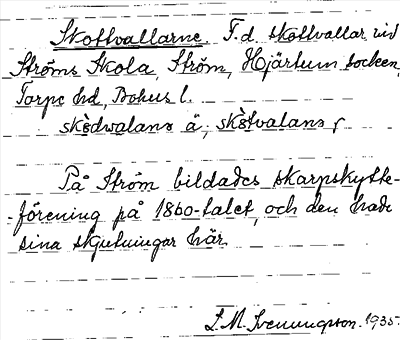 Skottvallarne F.d. skottvallar vid
Ströms Skola, Ström, Hjärtum socken,
Torpe hd, Bohus l.
skòdvalana ä, skòtvalans f
På Ström bildades skarpskytte-
-förening på 1860-talet, och den hade
sina skjutningar här.
L.M. Svenungsson. 1935.